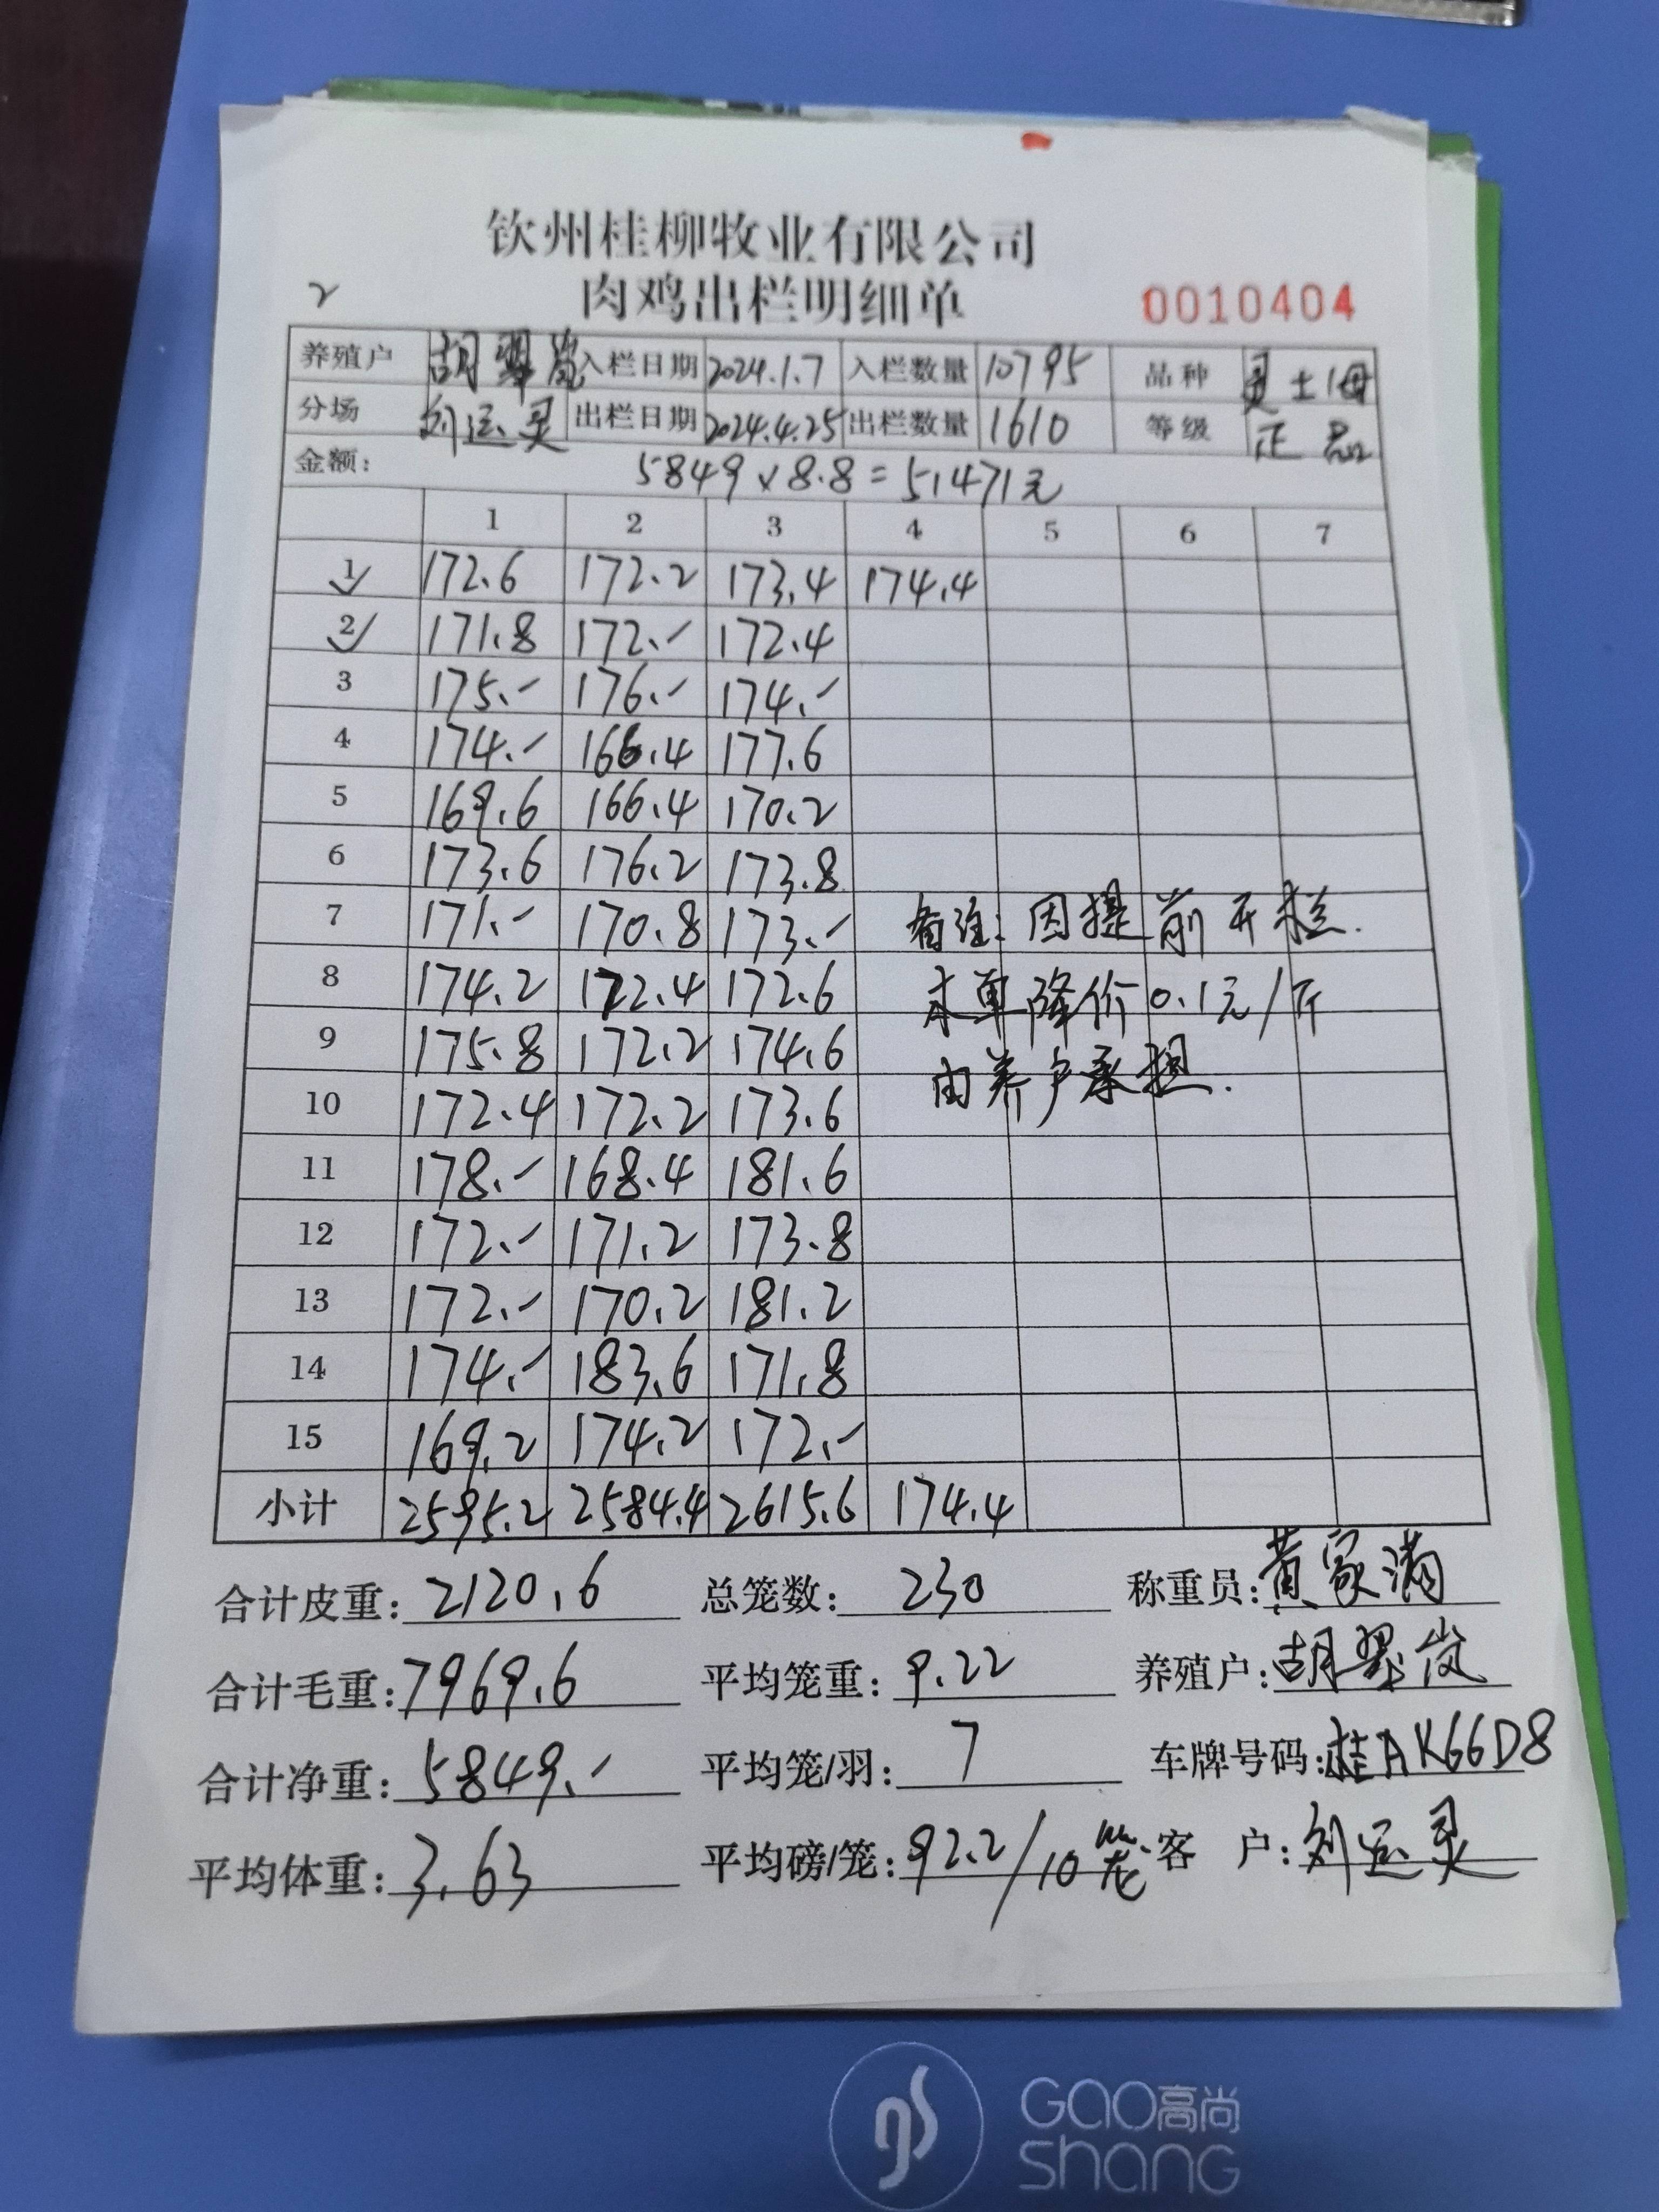 钦州桂柳牧业有限公司
2 肉鸡出栏明细单 0010404
养殖户 胡翠岚 入栏日期 2024.1.7 入栏数量 10795 品种 灵土1母
分场 刘运灵 出栏日期 2024.4.25 出栏数量 1610 等级 正品
金额: 5849×8.8=51471元
1 2 3 4 5 6 7
1✓ 172.6 172.2 173.4 174.4
2✓ 171.8 172.- 172.4
3 175.- 176.- 174.-
4 174.- 166.4 177.6
5 169.6 166.4 170.2
6 173.6 176.2 173.8
7 171.- 170.8 173.- 备注:因提前开栏.
8 174.2 172.4 172.6 本单降价0.1元/斤
9 175.8 172.2 174.6 由养户承担.
10 172.4 172.2 173.6
11 178.- 168.4 181.6
12 172.- 171.2 173.8
13 172.- 170.2 181.2
14 174.- 183.6 171.8
15 169.2 174.2 172.-
小计 2595.2 2584.4 2615.6 174.4
合计皮重: 2120.6 总笼数: 230 称重员: 黄家满
合计毛重: 7969.6 平均笼重: 9.22 养殖户: 胡翠岚
合计净重: 5849.- 平均笼/羽: 7 车牌号码: 桂AK66D8
平均体重: 3.63 平均磅/笼: 92.2/10笼 客 户: 刘运灵
GAO高尚
SHANG